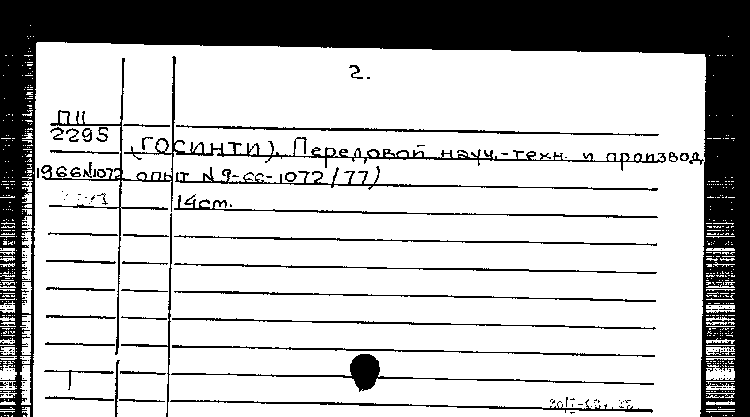 2.
П11
2295
(ГОСИНТИ). Передовой науч.-техн. и производ.
1966 N1072 опыт N 9-66-1072/77)
14cm.